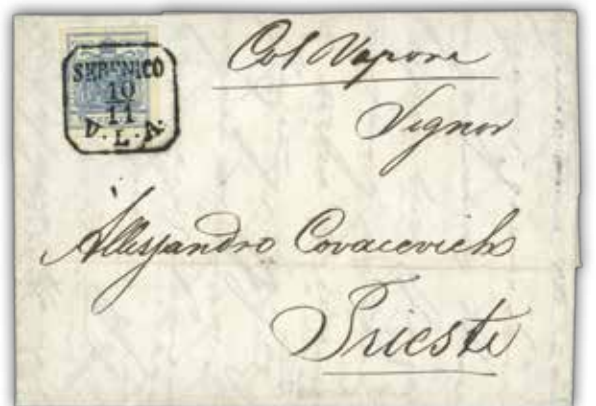 SEBENICO
10
11
D.L.A.
Col Vapore
Signor
Allessandro Covacevich
Trieste